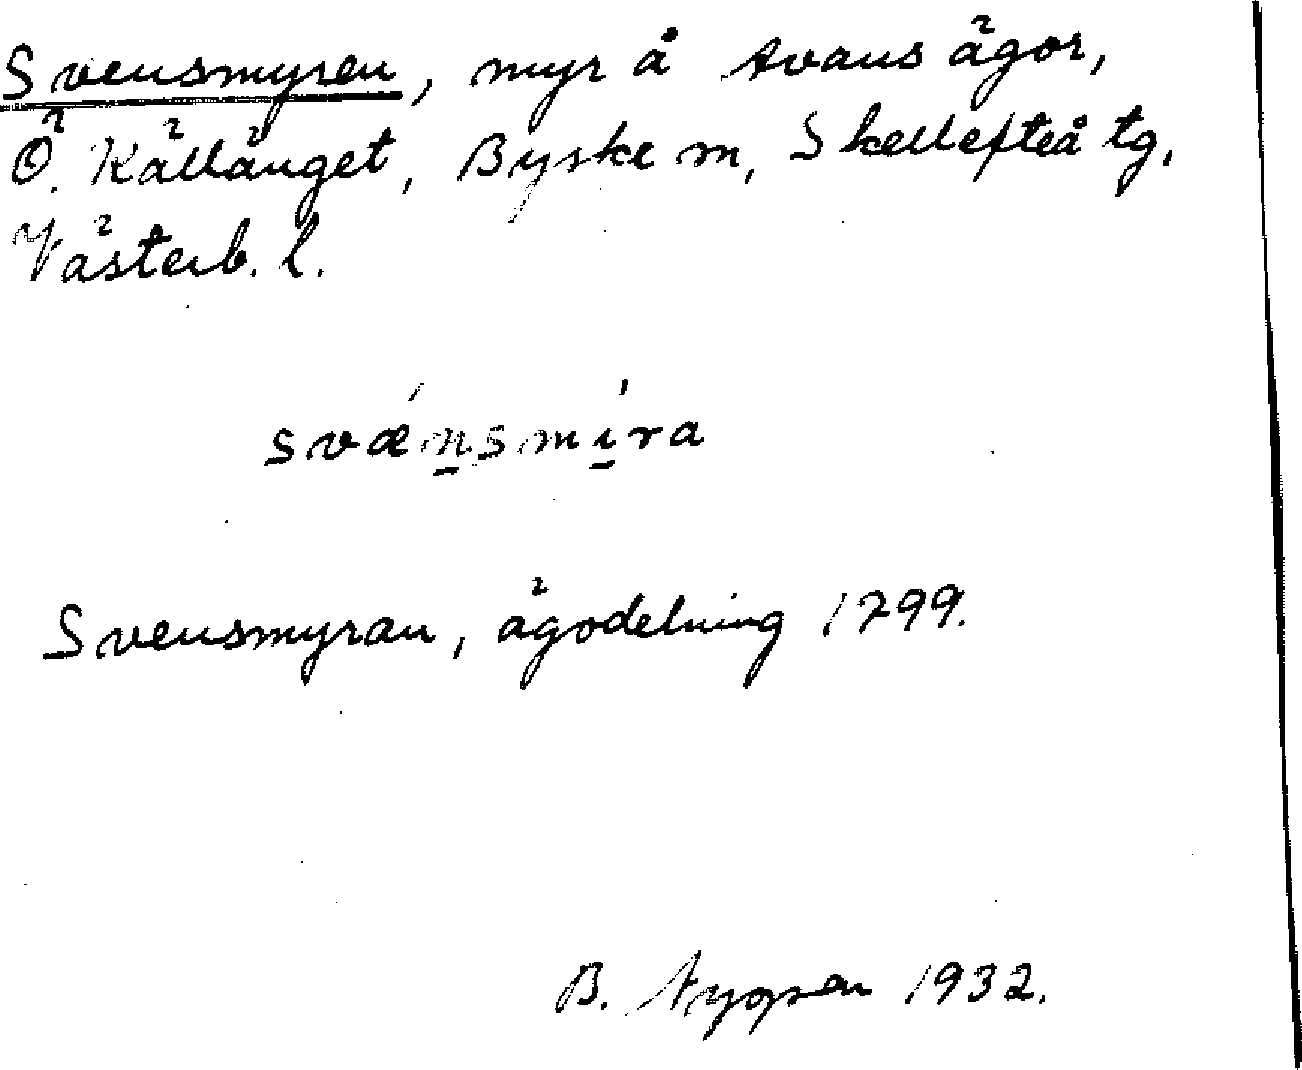 Svensmyren, myr å Avans ägor,
Ö. Källänget, Byske m, Skellefteå tg,
Västerb. l.
svǽn̲smí̲ra
Svensmyran, ägodelning 1799.
B. 1932.